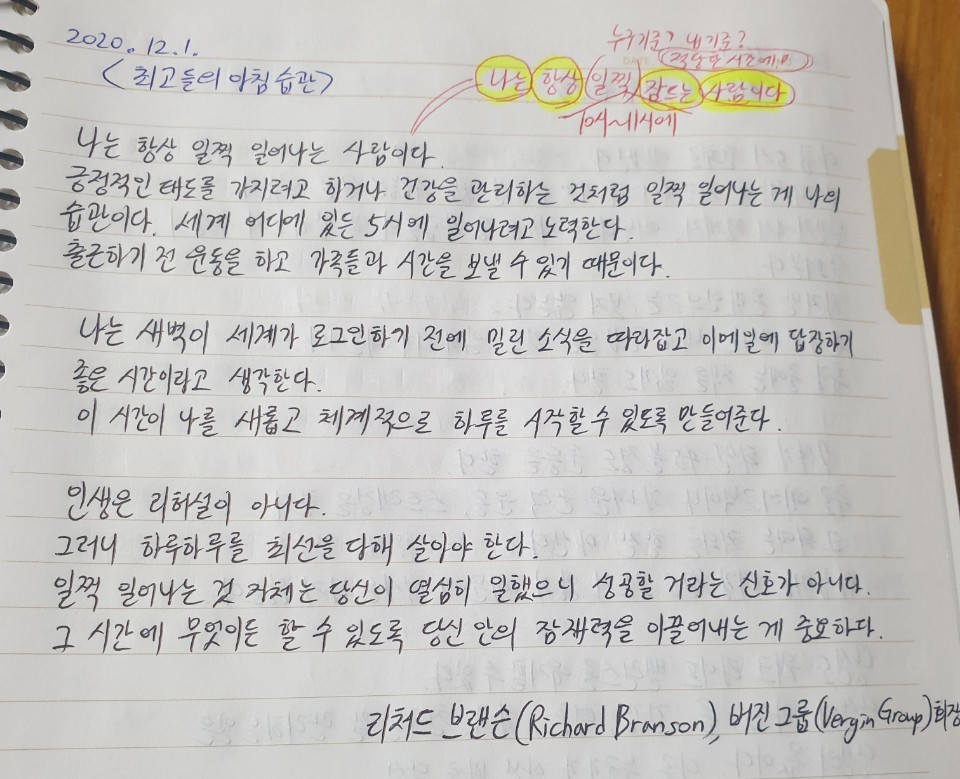 2020.12.1.
<최고들의 아침 습관>
누구기준? 내기준?
적당한 시간에!!
나는 항상 일찍 잠드는 사람이다
10시~11시에
나는 항상 일찍 일어나는 사람이다.
긍정적인 태도를 가지려고 하거나 건강을 관리하는 것처럼 일찍 일어나는 게 나의
습관이다. 세계 어디에 있든 5시에 일어나려고 노력한다.
출근하기 전 운동을 하고 가족들과 시간을 보낼 수 있기 때문이다.
나는 새벽이 세계가 로그인하기 전에 밀린 소식을 따라잡고 이메일에 답장하기
좋은 시간이라고 생각한다.
이 시간이 나를 새롭고 체계적으로 하루를 시작할 수 있도록 만들어준다.
인생은 리허설이 아니다.
그러니 하루하루를 최선을 당해 살아야 한다.
일찍 일어나는 것 자체는 당신이 열심히 일했으니 성공할 거라는 신호가 아니다.
그 시간에 무엇이든 할 수 있도록 당신 안의 잠재력을 이끌어내는 게 중요하다.
리처드 브랜슨(Richard Branson), 버진 그룹(Vergin Group) 회장